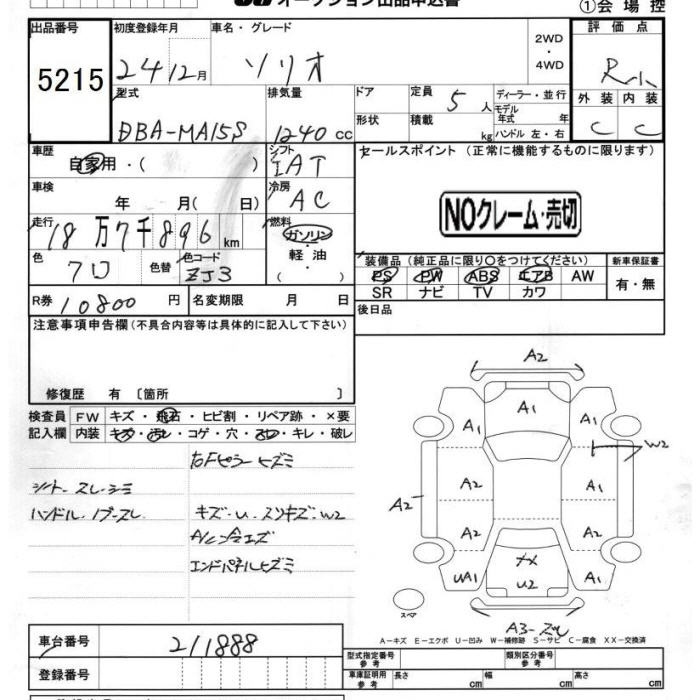 オークション出品申込書
①会場控
出品番号 初度登録年月 車名・グレード 2WD・4WD 評価点
5215 24 12月 ソリオ R小
外装 内装
C C
型式 排気量 ドア 定員 5人 ディーラー・並行
モデル年式 年
DBA-MA15S 1240cc 形状 積載 kg ハンドル 左・右
車歴 シフト セールスポイント (正常に機能するものに限ります)
自家用・( ) IAT
車検 冷房
年 月( 日) AC
NOクレーム・売切
走行 燃料
18万7千896km ガソリン・軽油・( )
装備品 (純正品に限り○をつけてください) 新車保証書
色 色替 色コード
クロ ZJ3
PS PW ABS エアB AW 有・無
SR ナビ TV カワ
R券 10800円 名変期限 月 日
後日品
注意事項申告欄(不具合内容等は具体的に記入して下さい)
修復歴 有〔箇所 〕
検査員 FW キズ・飛石・ヒビ割・リペア跡・×要
記入欄 内装 キズ・汚レ・コゲ・穴・スレ・キレ・破レ
右Fピラーヒズミ
シート・スレ・シミ
ハンドル・ノブ・スレ
キズ・U・スリキズ・W2
エンドパネルヒズミ
A2
A1
A1 A1
W2
A2 A1
A2
A2 A2
UA1 U2 A1
スペア
A3
A-キズ E-エクボ U-凹み W-補修跡 S-サビ C-腐食 XX-交換済
車台番号 211888
登録番号
型式指定番号 参考 類別区分番号 参考
車庫証明用 参考 長さ cm 幅 cm 高さ cm